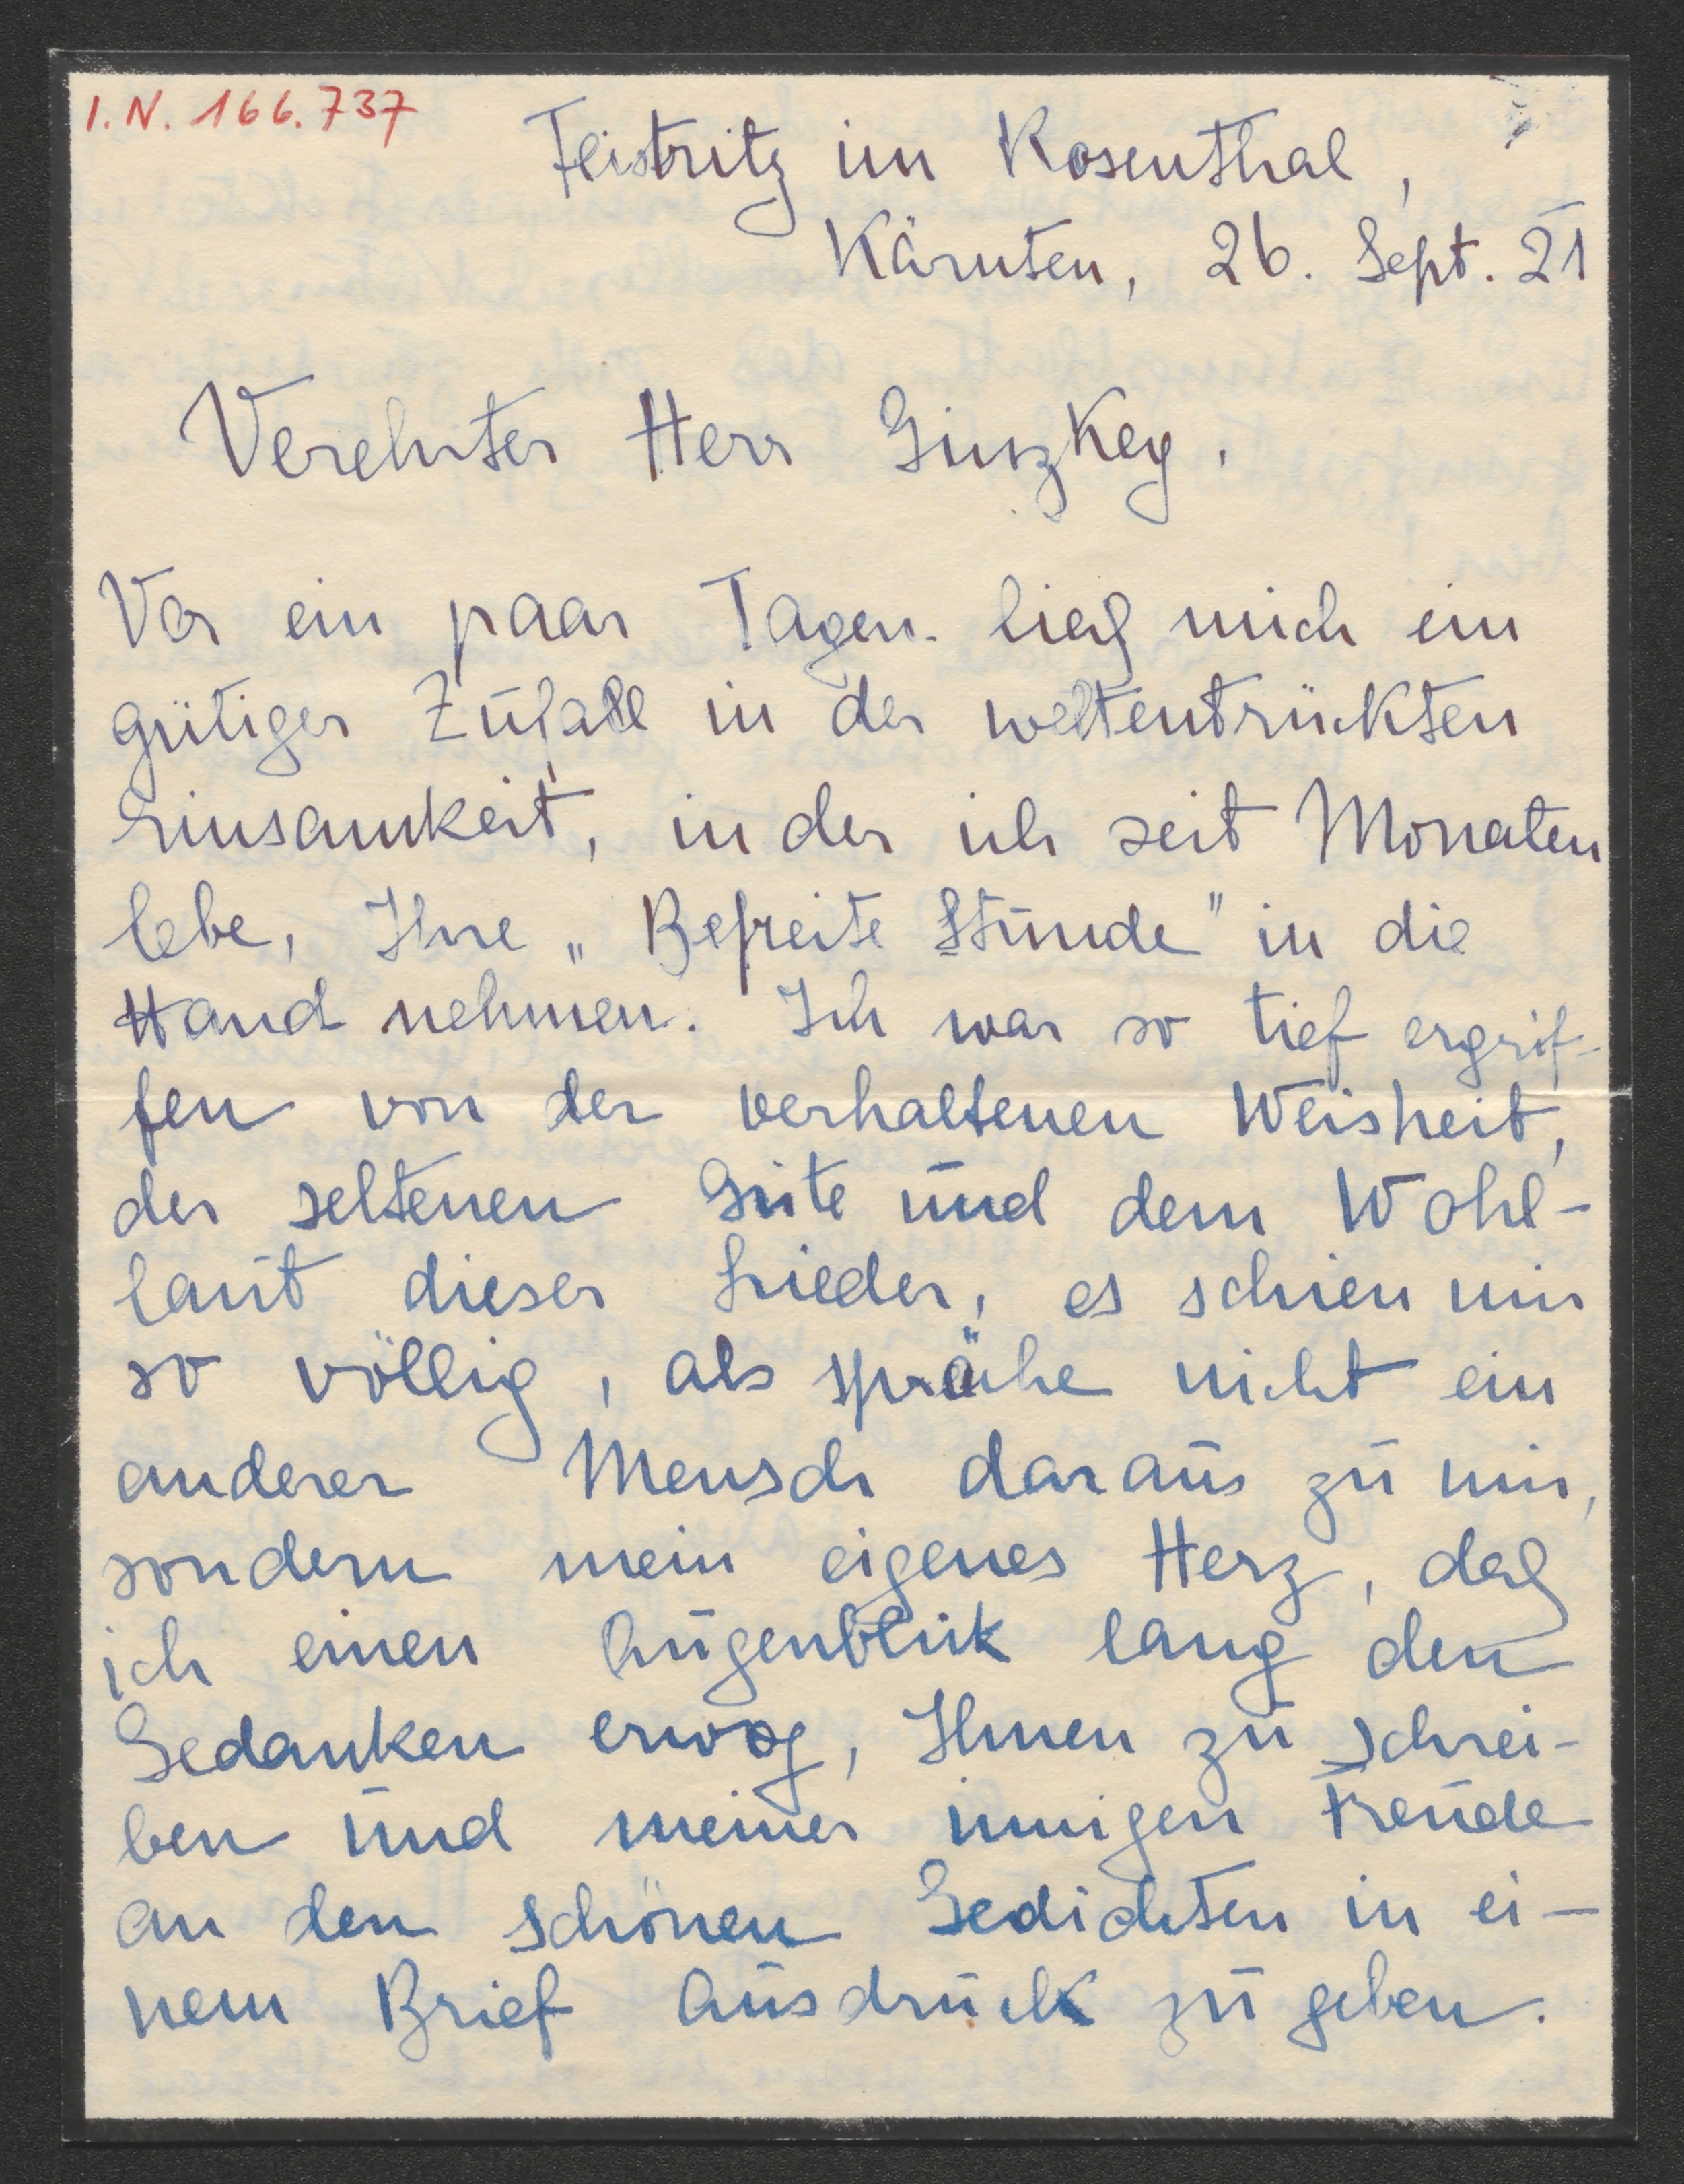 I. N. 166.737
Feistritz im Rosenthal,
Kärnten, 26. Sept. 21
Verehrter Herr Ginzkey,
Vor ein paar Tagen ließ mich ein
gütiger Zufall in der weltentrückten
Einsamkeit, in der ich seit Monaten
lebe, Ihre „Befreite Stunde" in die
Hand nehmen. Ich war so tief ergrif-
fen von der verhaltenen Weisheit,
der seltenen Güte und dem Wohl-
laut dieser Lieder, es schien mir
so völlig, als spräche nicht ein
anderer Mensch daraus zu mir,
sondern mein eigenes Herz, daß
ich einen Augenblick lang den
Gedanken erwog, Ihnen zu schrei-
ben und meiner innigen Freude
an den schönen Gedichten in ei-
nem Brief Ausdruck zu geben.